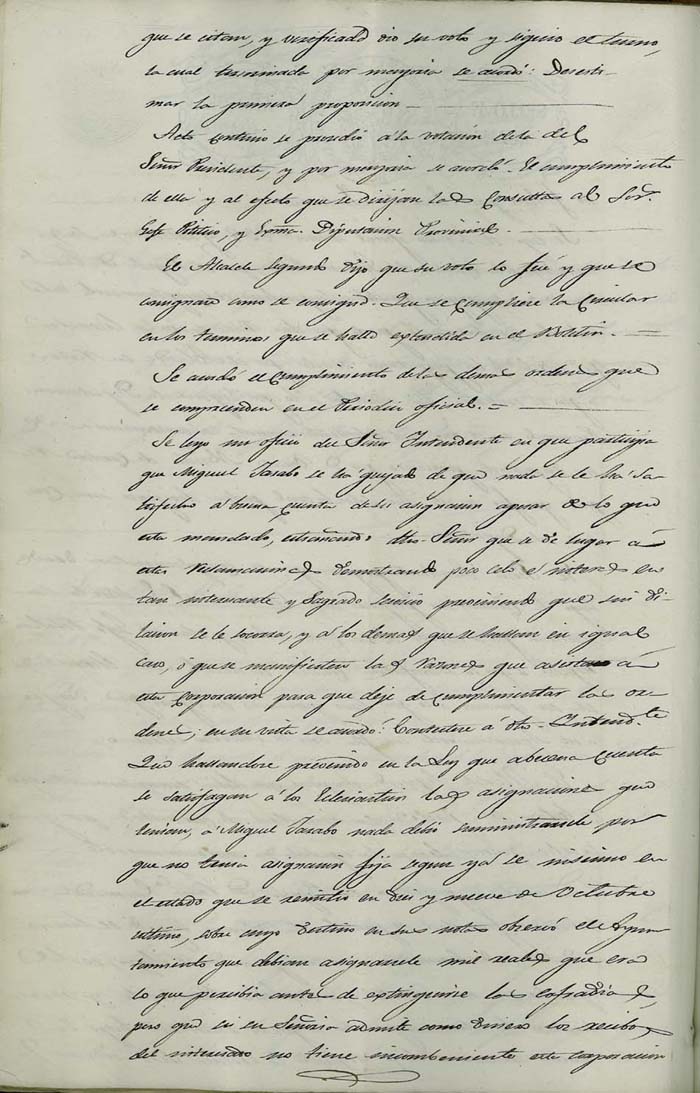 que se citan, y verificado dio su voto y siguio el turno,
la cual terminada por mayoria se acordó: Desesti-
mar la primera proposicion
Acto continuo se procedió á la votacion de la del
Señor Presidente, y por mayoria se acordó. El cumplimiento
de ella y al efecto que se dirijan las Consultas al Sor.
Gefe Politico, y Exma. Diputacion Provincial.
El Alcalde segundo dijo que su voto lo fué y que se
consignara como se consignó. Que se cumpliese la Circular
en los terminos que se halla extendida en el Boletin.
Se acordó el cumplimiento de las demas ordenes que
se comprenden en el Periodico oficial.
Se leyo un oficio del Señor Intendente en que participa
que Miguel Jarabo se há quejado de que nada se le há sa-
tisfecho á buena cuenta de su asignacion apesar de lo que
esta mandado, estrañando dho. Señor que se de lugar á
estas reclamaciones demostrando poco celo é interes en
tan interesante y Sagrado servicio previniendo que sin di-
lacion se le socorra, y á los demas que se hallan en igual
caso, ó que se manifiesten las razones que asisten á
esta Corporacion para que deje de cumplimentar las or-
denes; en su vista se acordó: Contestar á dho. Intendte.
Que hallandose prevenido en la Ley que á buena cuenta
se satisfagan á los Eclesiasticos las asignaciones que
tenian, á Miguel Jarabo nada debió suministrarsele por-
que no tenia asignacion fija segun ya se
el estado que se remitio en diez y nueve de Octubre
ultimo, sobre cuyo destino en sus notas observó el Ayun-
tamiento que debian asignarsele mil reales que era
lo que percibia antes de extinguirse las cofradias,
pero que si su Señoria admite como dinero los recibos
del interesado no tiene incombeniente esta corporacion